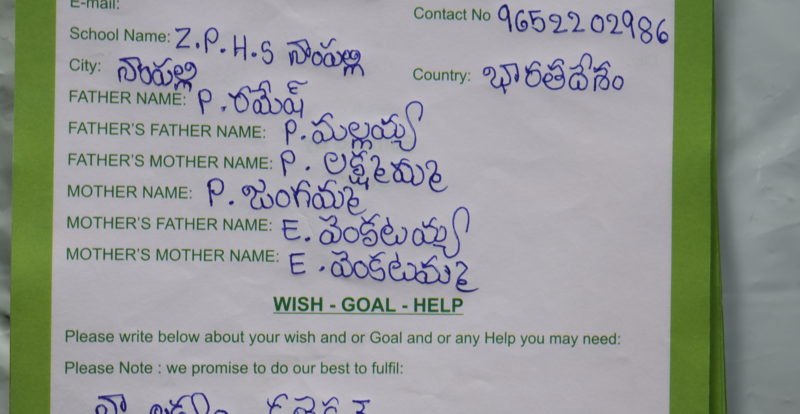 E-mail:
Contact No 9652202986
School Name: Z.P.H.S నాంపల్లి
City: నాంపల్లి
Country: భారతదేశం
FATHER NAME: P. రమేష్
FATHER'S FATHER NAME: P. మల్లయ్య
FATHER'S MOTHER NAME: P. లక్ష్మమ్మ
MOTHER NAME: P. జంగమ్మ
MOTHER'S FATHER NAME: E. వెంకటయ్య
MOTHER'S MOTHER NAME: E. వెంకటమ్మ
WISH - GOAL - HELP
Please write below about your wish and or Goal and or any Help you may need:
Please Note : we promise to do our best to fulfil:
నా